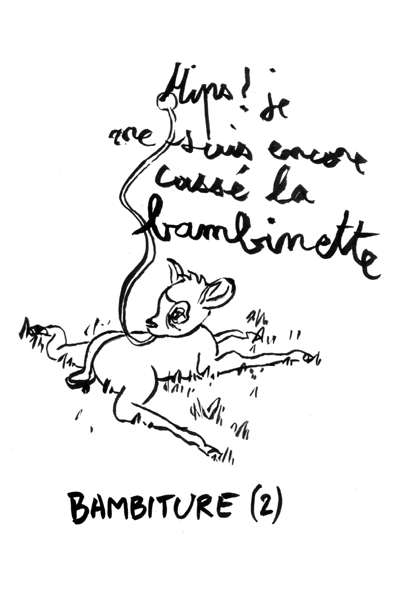 Hips! je
me suis encore
cassé la
bambinette
BAMBITURE (2)